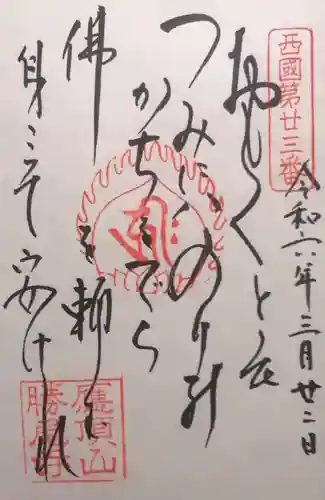 西國第廿三番
令和六年三月廿二日
おもくとも
つみにはのりの
かちをでら
佛を頼む
身こそ安けれ
應頂山
勝尾寺